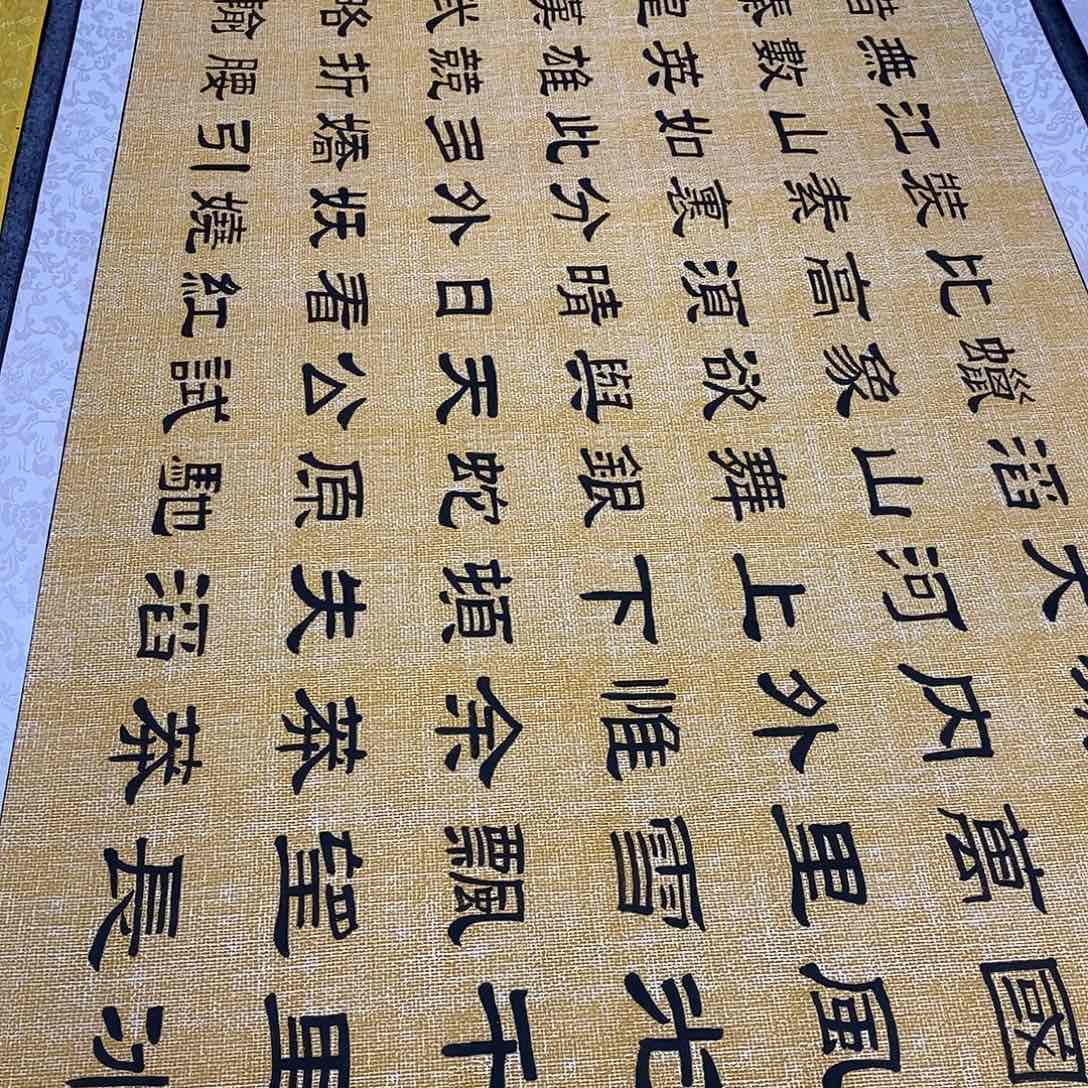 國風光千里冰
萬里雪飄望長
內外惟余莽莽
大河上下頓失滔
滔山舞銀蛇原馳
蠟象欲與天公試
比高須晴日看紅
裝素裹分外妖嬈
江山如此多嬌引
無數英雄競折腰
惜皇漢武略輸